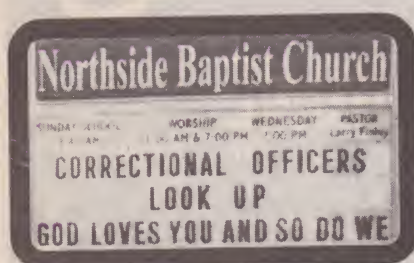 Northside Baptist Church
SUNDAY SCHOOL WORSHIP WEDNESDAY PASTOR
AM AM & 7:00 PM 7:00 PM Larry Finley
CORRECTIONAL OFFICERS
LOOK UP
GOD LOVES YOU AND SO DO WE